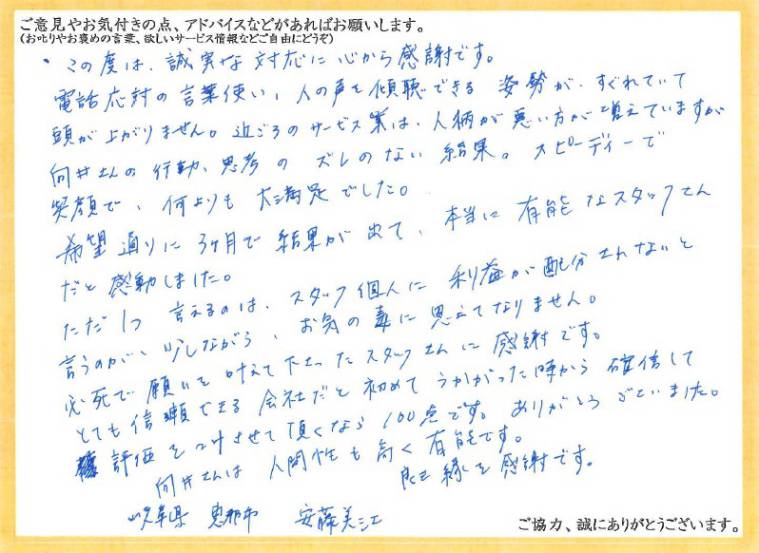 ご意見やお気付きの点、アドバイスなどがあればお願いします。
(お叱りやお褒めの言葉、欲しいサービス情報などご自由にどうぞ)
・この度は、誠実な対応に心から感謝です。
電話応対の言葉使い、人の声を傾聴できる姿勢が、すぐれていて
頭が上がりません。近ごろのサービス業は、人柄が悪い方が増えていますが
向井さんの行動、思考のズレのない結果。スピーディーで
笑顔で、何よりも大満足でした。
希望通りに3ヶ月で結果が出て、本当に有能なスタッフさん
だと感動しました。
ただ1つ言えるのは、スタッフ個人に利益が配分されないと
言うのが、少しながら、お気の毒に思えてなりません。
必死で願いを叶えて下さったスタッフさんに感謝です。
とても信頼できる会社だと初めてうかがった時から確信して
評価をつけさせて頂くなら100点です。ありがとうございました。
向井さんは人間性も高く有能です。
良き縁を感謝です。
岐阜県 恵那市 安藤美江
ご協力、誠にありがとうございます。